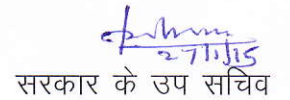 27/1/15
सरकार के उप सचिव